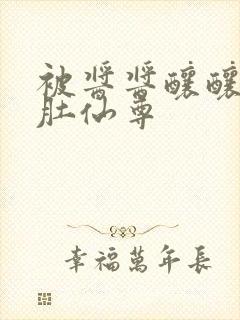 被醬醬釀釀
肚仙尊
幸福萬年長